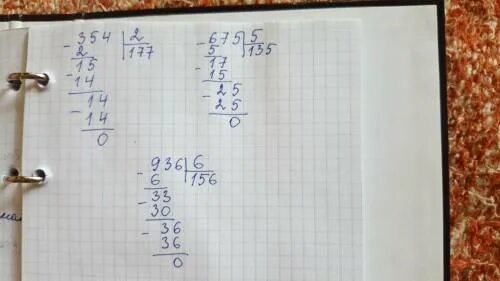 - 354 | 2
2 | 177
- 15
14
- 14
14
0
- 675 | 5
5 | 135
- 17
15
- 25
25
0
- 936 | 6
6 | 156
- 33
30
- 36
36
0